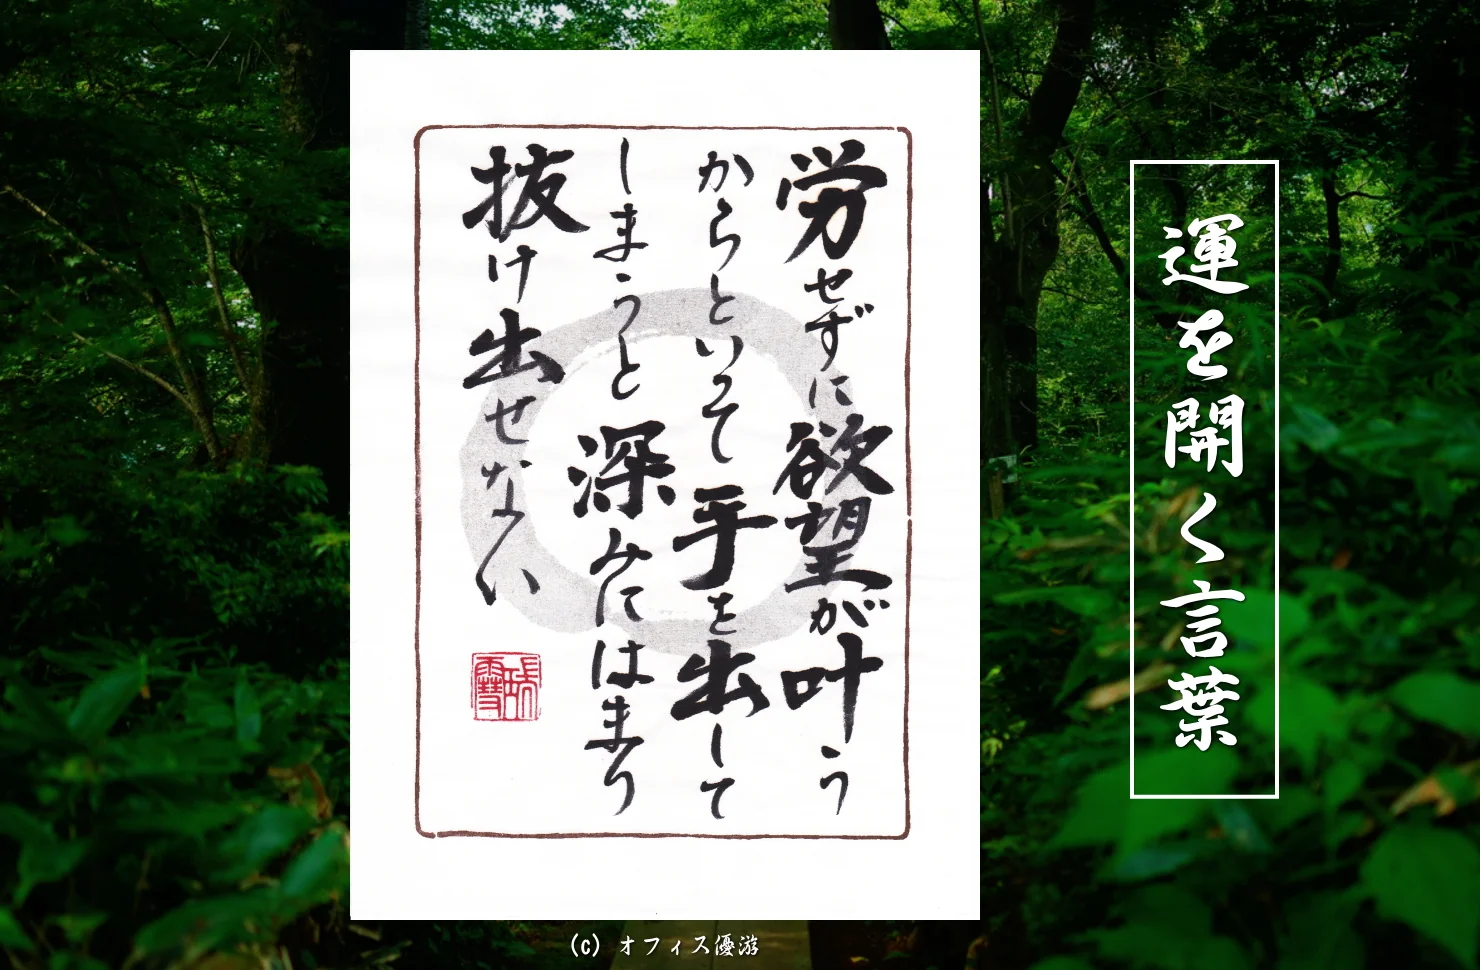 運を開く言葉
労せずに欲望が叶う
からといって手を出して
しまうと深みにはまり
抜け出せない
(c) オフィス優游